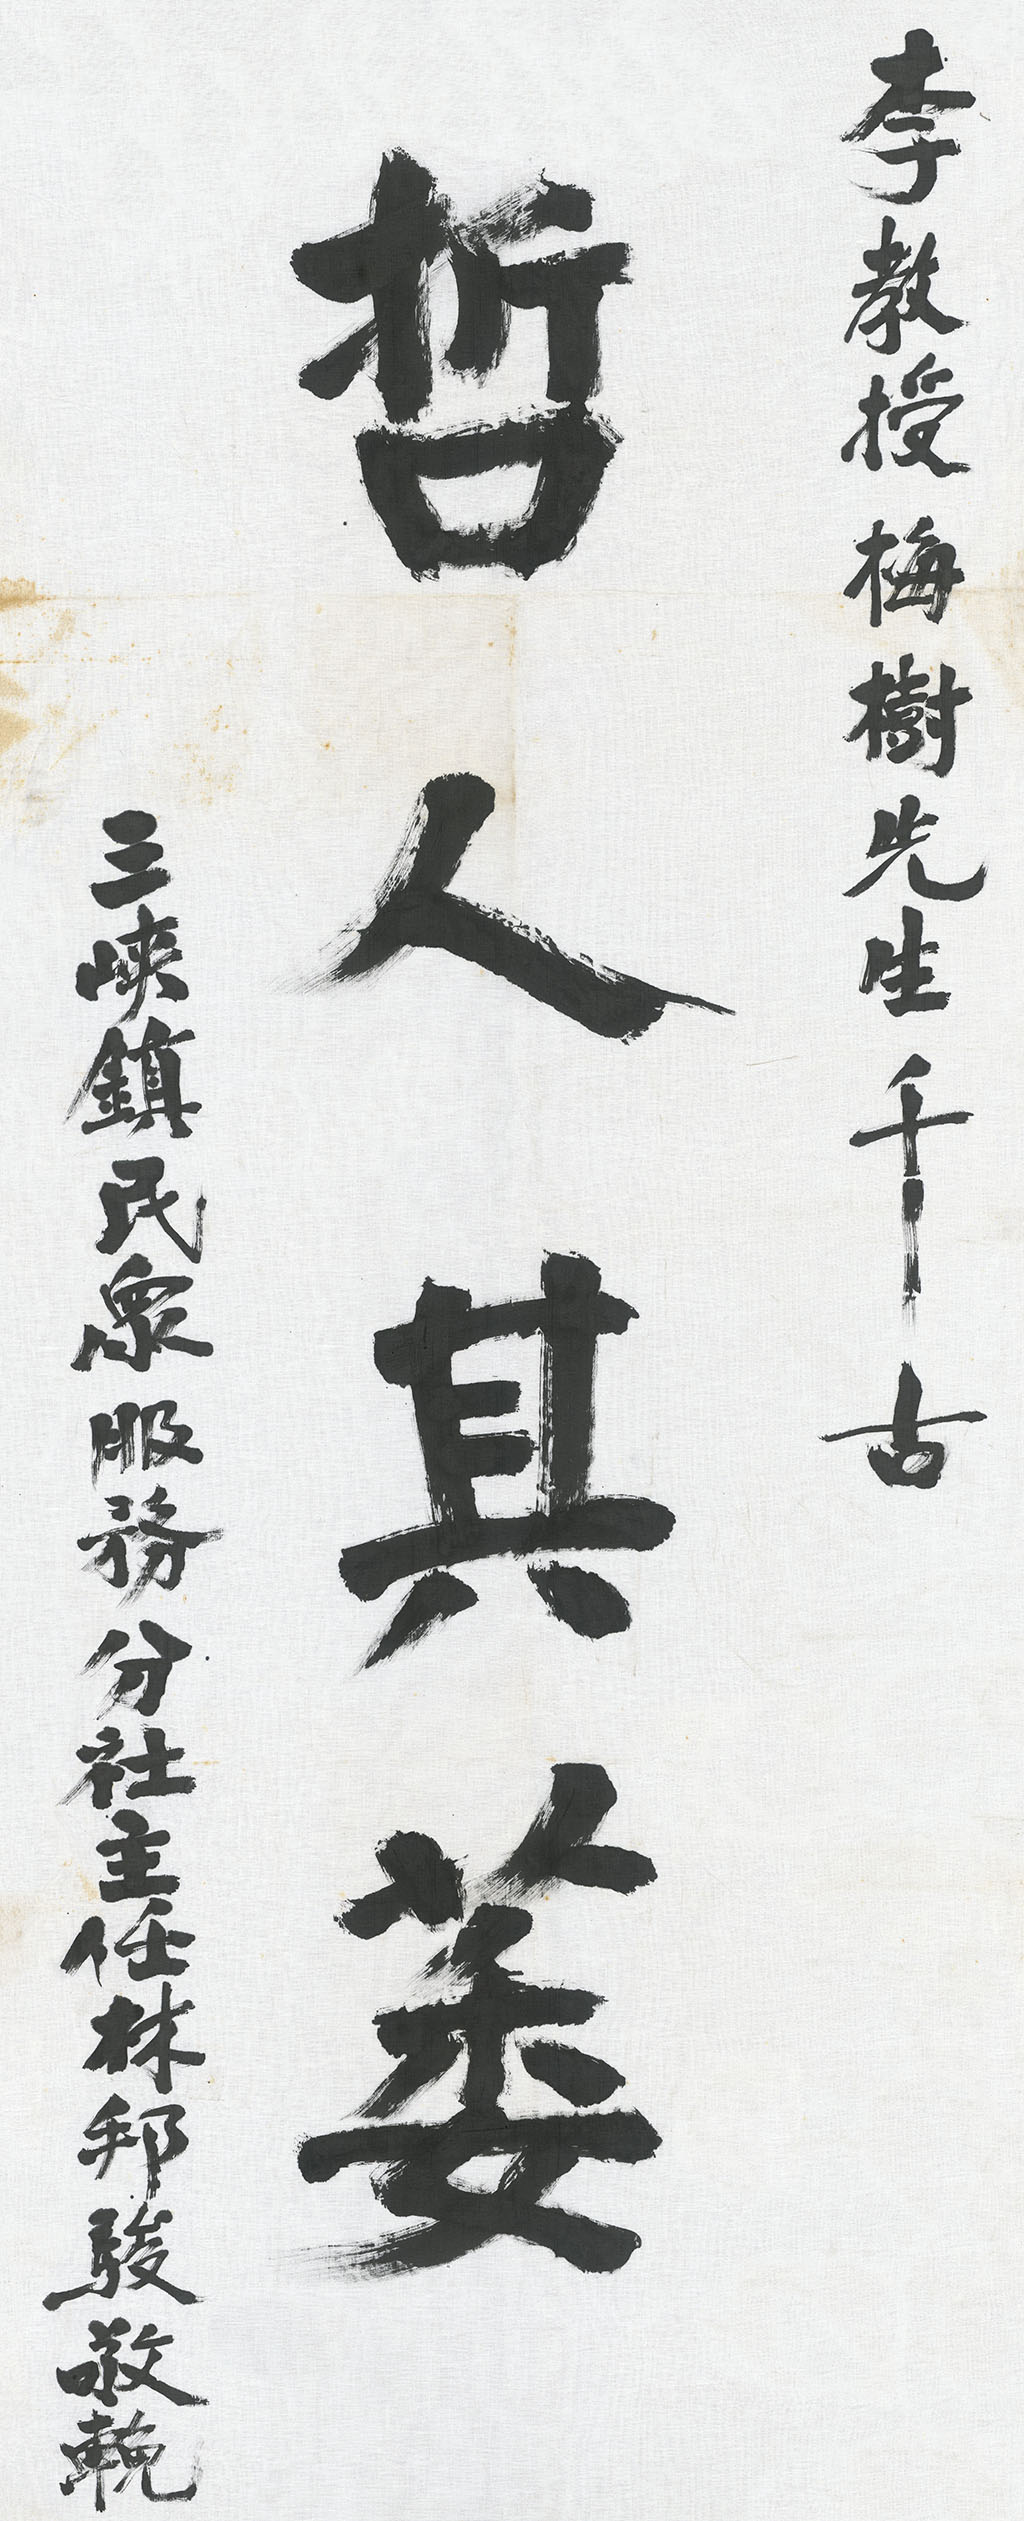 李教授梅樹先生千古
哲人其萎
三峽鎮民眾服務分社主任林邦駿敬輓